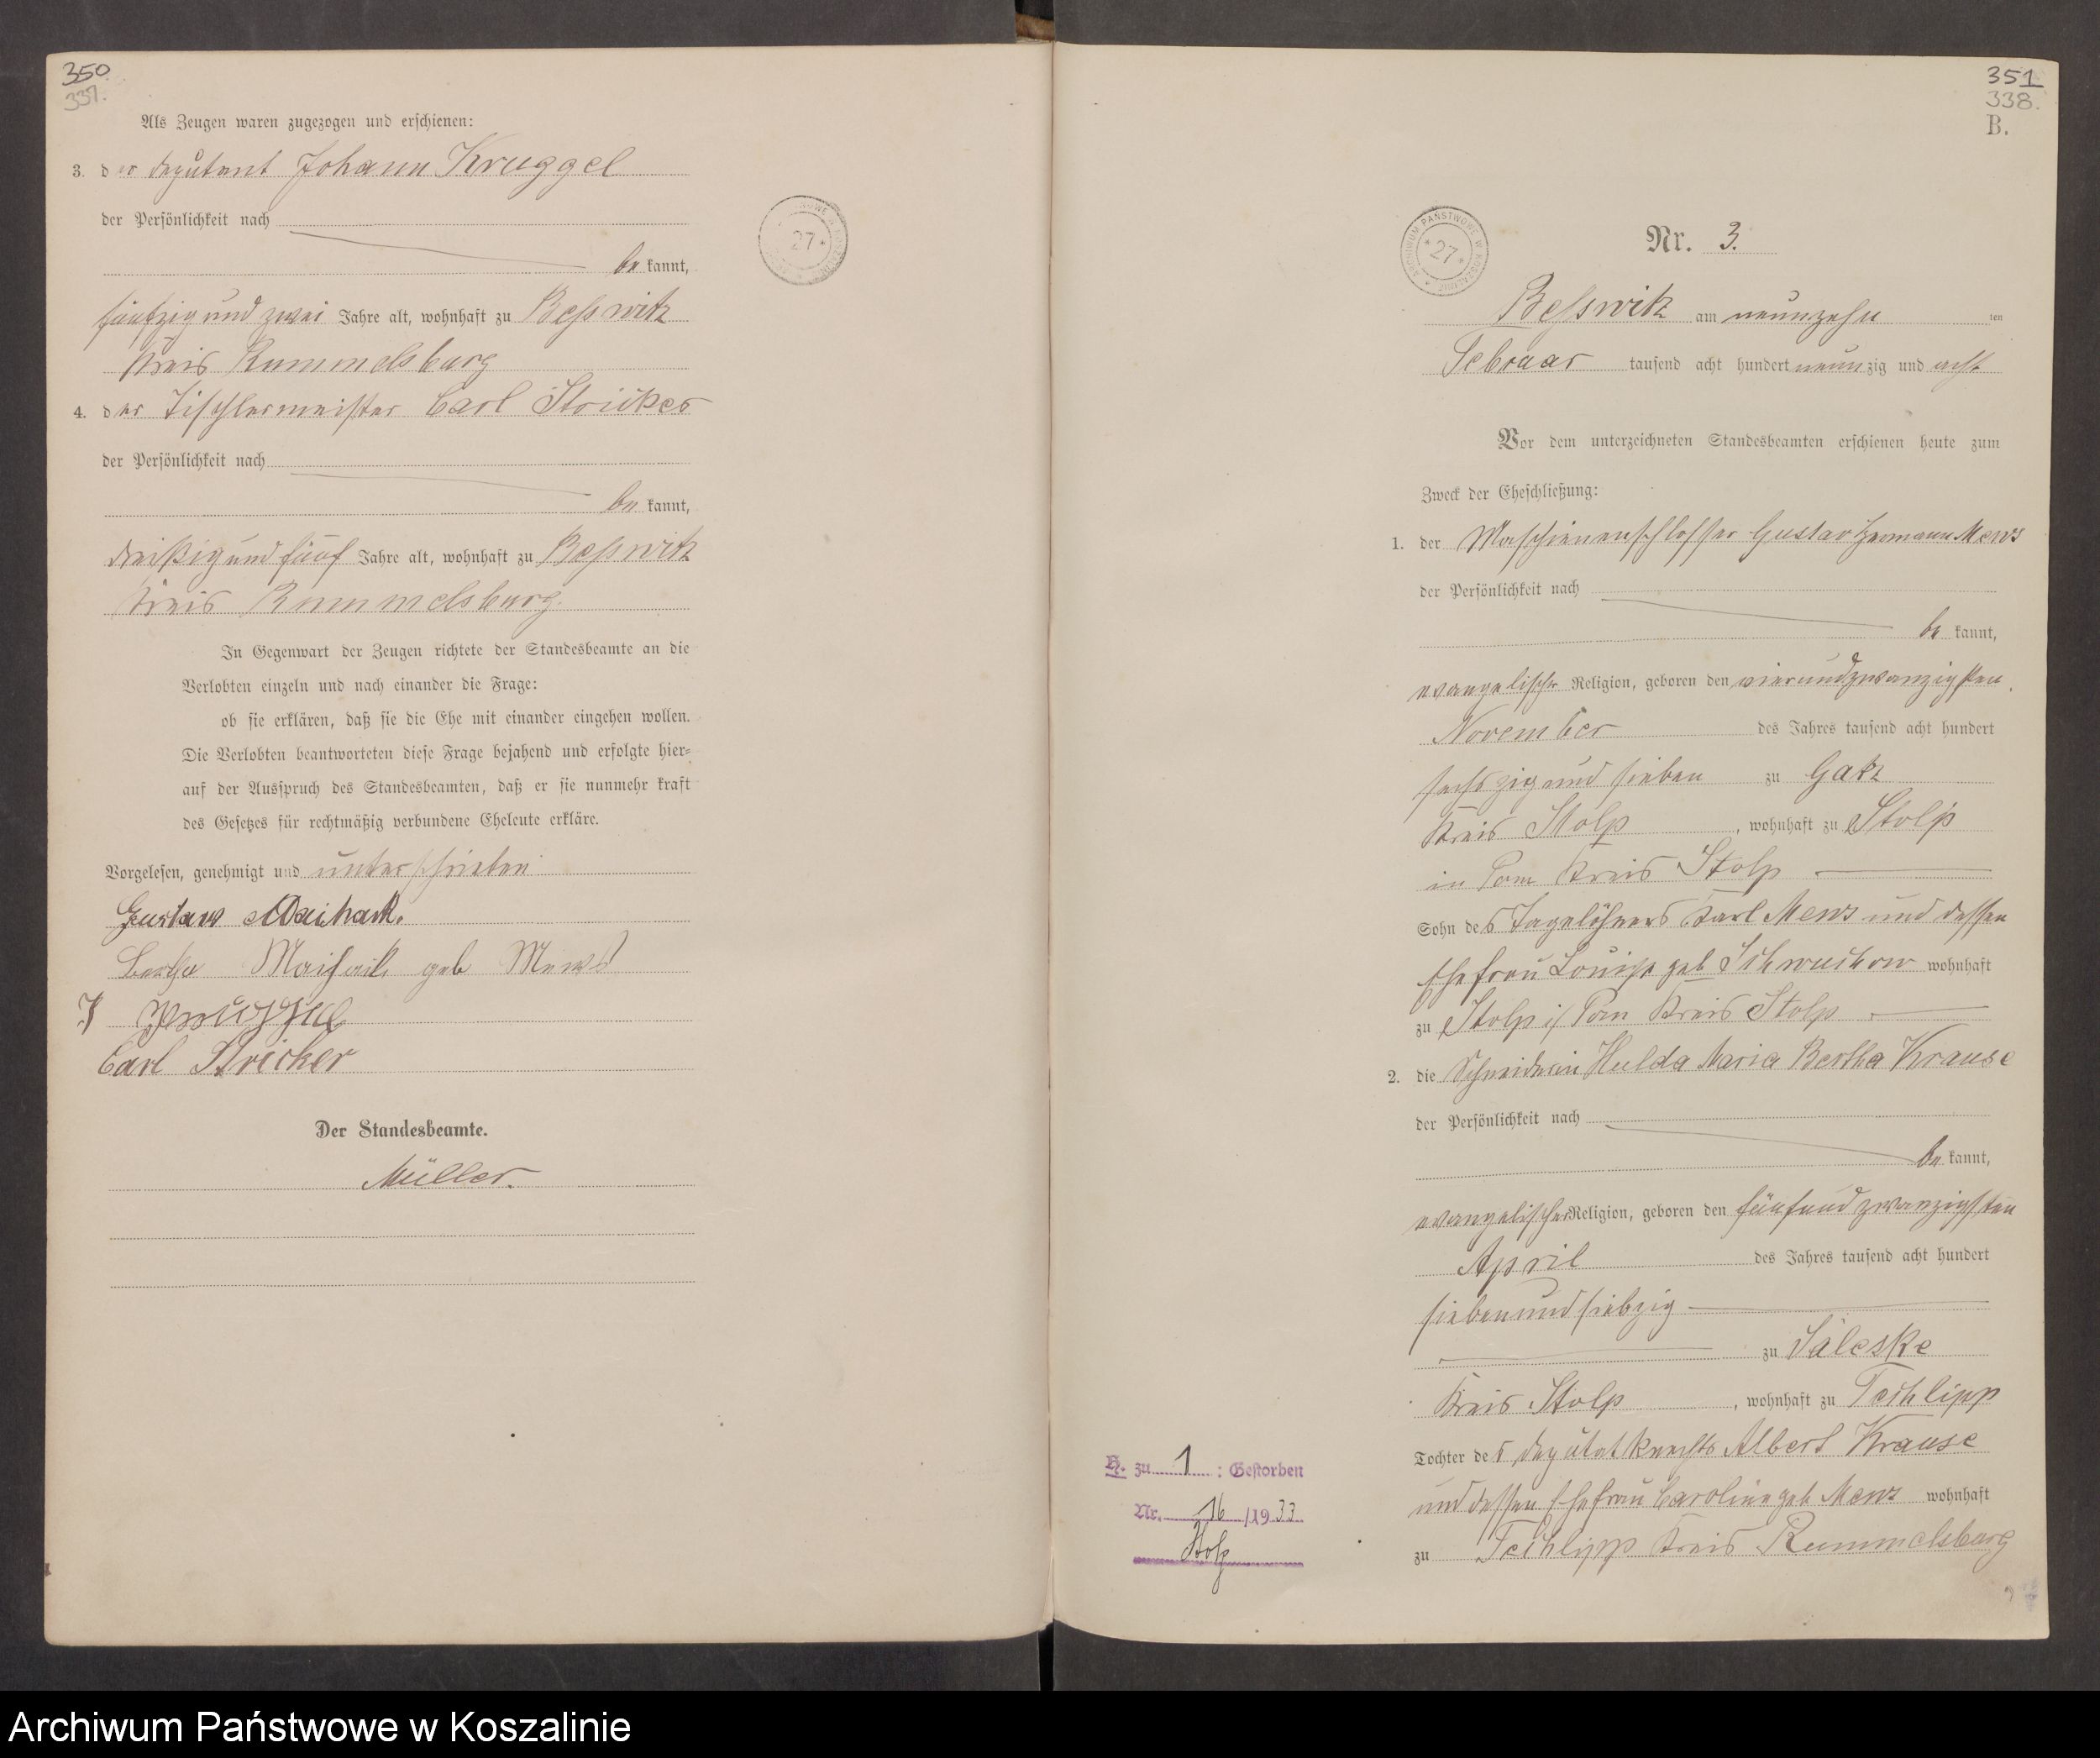 350
337.
Als Zeugen waren zugezogen und erschienen:
3. der Deputant Johann Kruggel
der Persönlichkeit nach
be kannt,
fünfzig und zwei Jahre alt, wohnhaft zu Beßwitz
Kreis Rummelsburg
4. der Tischlermeister Carl Stricker
der Persönlichkeit nach
be kannt,
dreißig und fünf Jahre alt, wohnhaft zu Beßwitz
Kreis Rummelsburg.
In Gegenwart der Zeugen richtete der Standesbeamte an die
Verlobten einzeln und nach einander die Frage:
ob sie erklären, daß sie die Ehe mit einander eingehen wollen.
Die Verlobten beantworteten diese Frage bejahend und erfolgte hier-
auf der Ausspruch des Standesbeamten, daß er sie nunmehr kraft
des Gesetzes für rechtmäßig verbundene Eheleute erkläre.
Vorgelesen, genehmigt und unterschrieben
Gustaw
Bertha geb Mews
J Kruggel
Carl Stricker
Der Standesbeamte.
Müller.
27
351
338.
B.
ARCHIWUM PAŃSTWOWE W KOSZALINIE
27
Nr. 3.
Beßwitz am neunzehn ten
Februar tausend acht hundert neunzig und acht
Vor dem unterzeichneten Standesbeamten erschienen heute zum
Zweck der Eheschließung:
1. der Maschienenschlosser Gustav Hermann Mews
der Persönlichkeit nach
be kannt,
evangelischer Religion, geboren den vierundzwanzigsten
November des Jahres tausend acht hundert
sechszig und sieben zu Gatz
Kreis Stolp, wohnhaft zu Stolp
in Pom Kreis Stolp
Sohn des Tagelöhners Karl Mews und dessen
Ehefrau Louise geb Schwuchow wohnhaft
zu Stolp i/ Pom Kreis Stolp
2. die Schneiderin Hulda Maria Bertha Krause
der Persönlichkeit nach
be kannt,
evangelischer Religion, geboren den fünfundzwanzigsten
April des Jahres tausend acht hundert
siebenundsiebzig
zu Saleske
Kreis Stolp, wohnhaft zu Techlipp
Tochter des Deputatknechts Albert Krause
und dessen Ehefrau Caroline geb Mews wohnhaft
zu Techlipp Kreis Rummelsburg
H. zu 1 : Gestorben
Nr. 16 /1933
Stolp
Archiwum Państwowe w Koszalinie